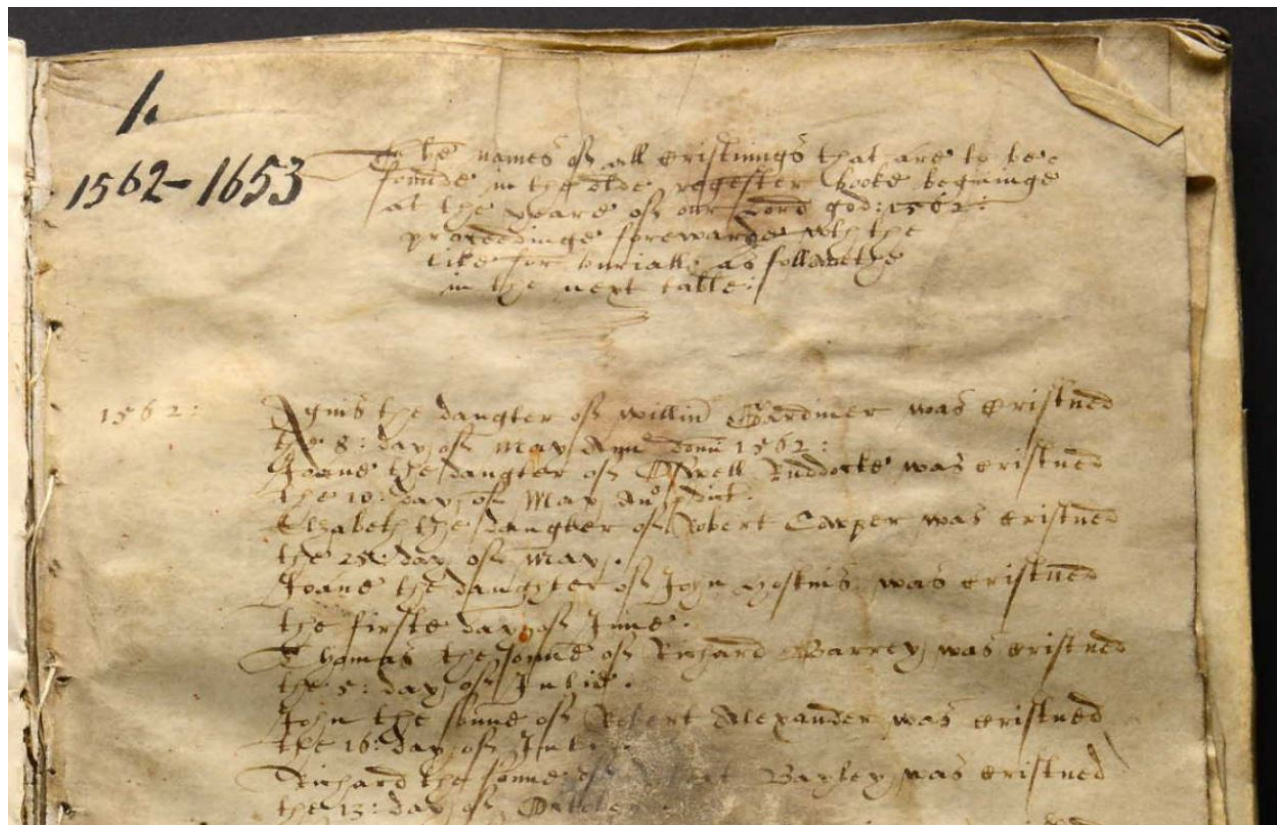 1.
1562-1653
the names of all cristnings that are to be
founde in the olde regester booke beginge
at the yeare of our Lord god: 1562:
proceedinge forewarde wth the
like for burialls as followethe
in the next table:
1562:
Agnis the daughter of Gardiner was cristned
the 8: day of May Ano domi 1562:
Joane the daughter of Ruddocke was cristned
the 10: day of May Ano
Elizabeth the daughter of Robert Cooper was cristned
the 25: day of May.
Joane the daughter of John was cristned
the firste day of June.
Thomas the sonne of Richard was cristned
the 5: day of Julie.
John the sonne of Robert Alexander was cristned
the 16: day of
Richard the sonne of Bayley was cristned
the 13: day of October.